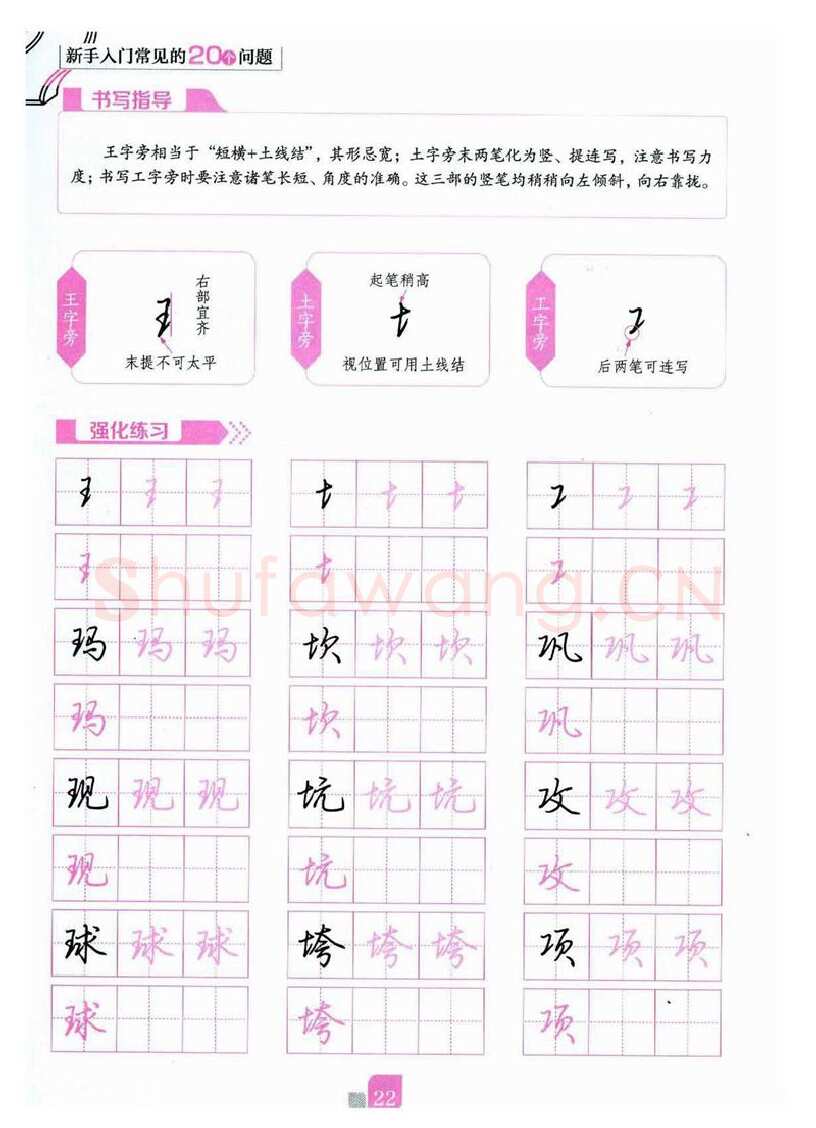 新手入门常见的20个问题
书写指导
王字旁相当于“短横+土线结”，其形忌宽；土字旁末两笔化为竖、提连写，注意书写力
度；书写工字旁时要注意诸笔长短、角度的准确。这三部的竖笔均稍稍向左倾斜，向右靠拢。
王字旁
王
右部宜齐
末提不可太平
土字旁
起笔稍高
土
视位置可用土线结
工字旁
工
后两笔可连写
强化练习
王 王 王
土 土 土
工 工 工
王
土
工
Shufawang.CN
玛 玛 玛
坎 坎 坎
巩 巩 巩
玛
坎
巩
现 现 现
坑 坑 坑
攻 攻 攻
现
坑
攻
球 球 球
垮 垮 垮
项 项 项
球
垮
项
22